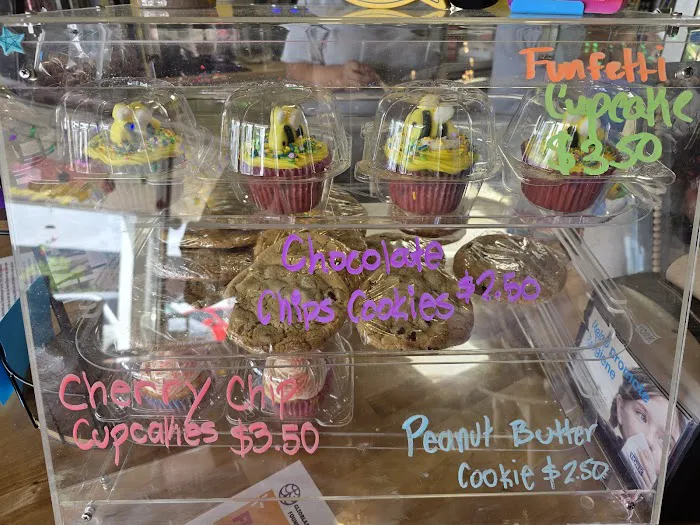 Funfetti
Cupcake
$3.50
Chocolate
Chips Cookies $2.50
Cherry Chip
Cupcakes $3.50
Peanut Butter
Cookie $2.50